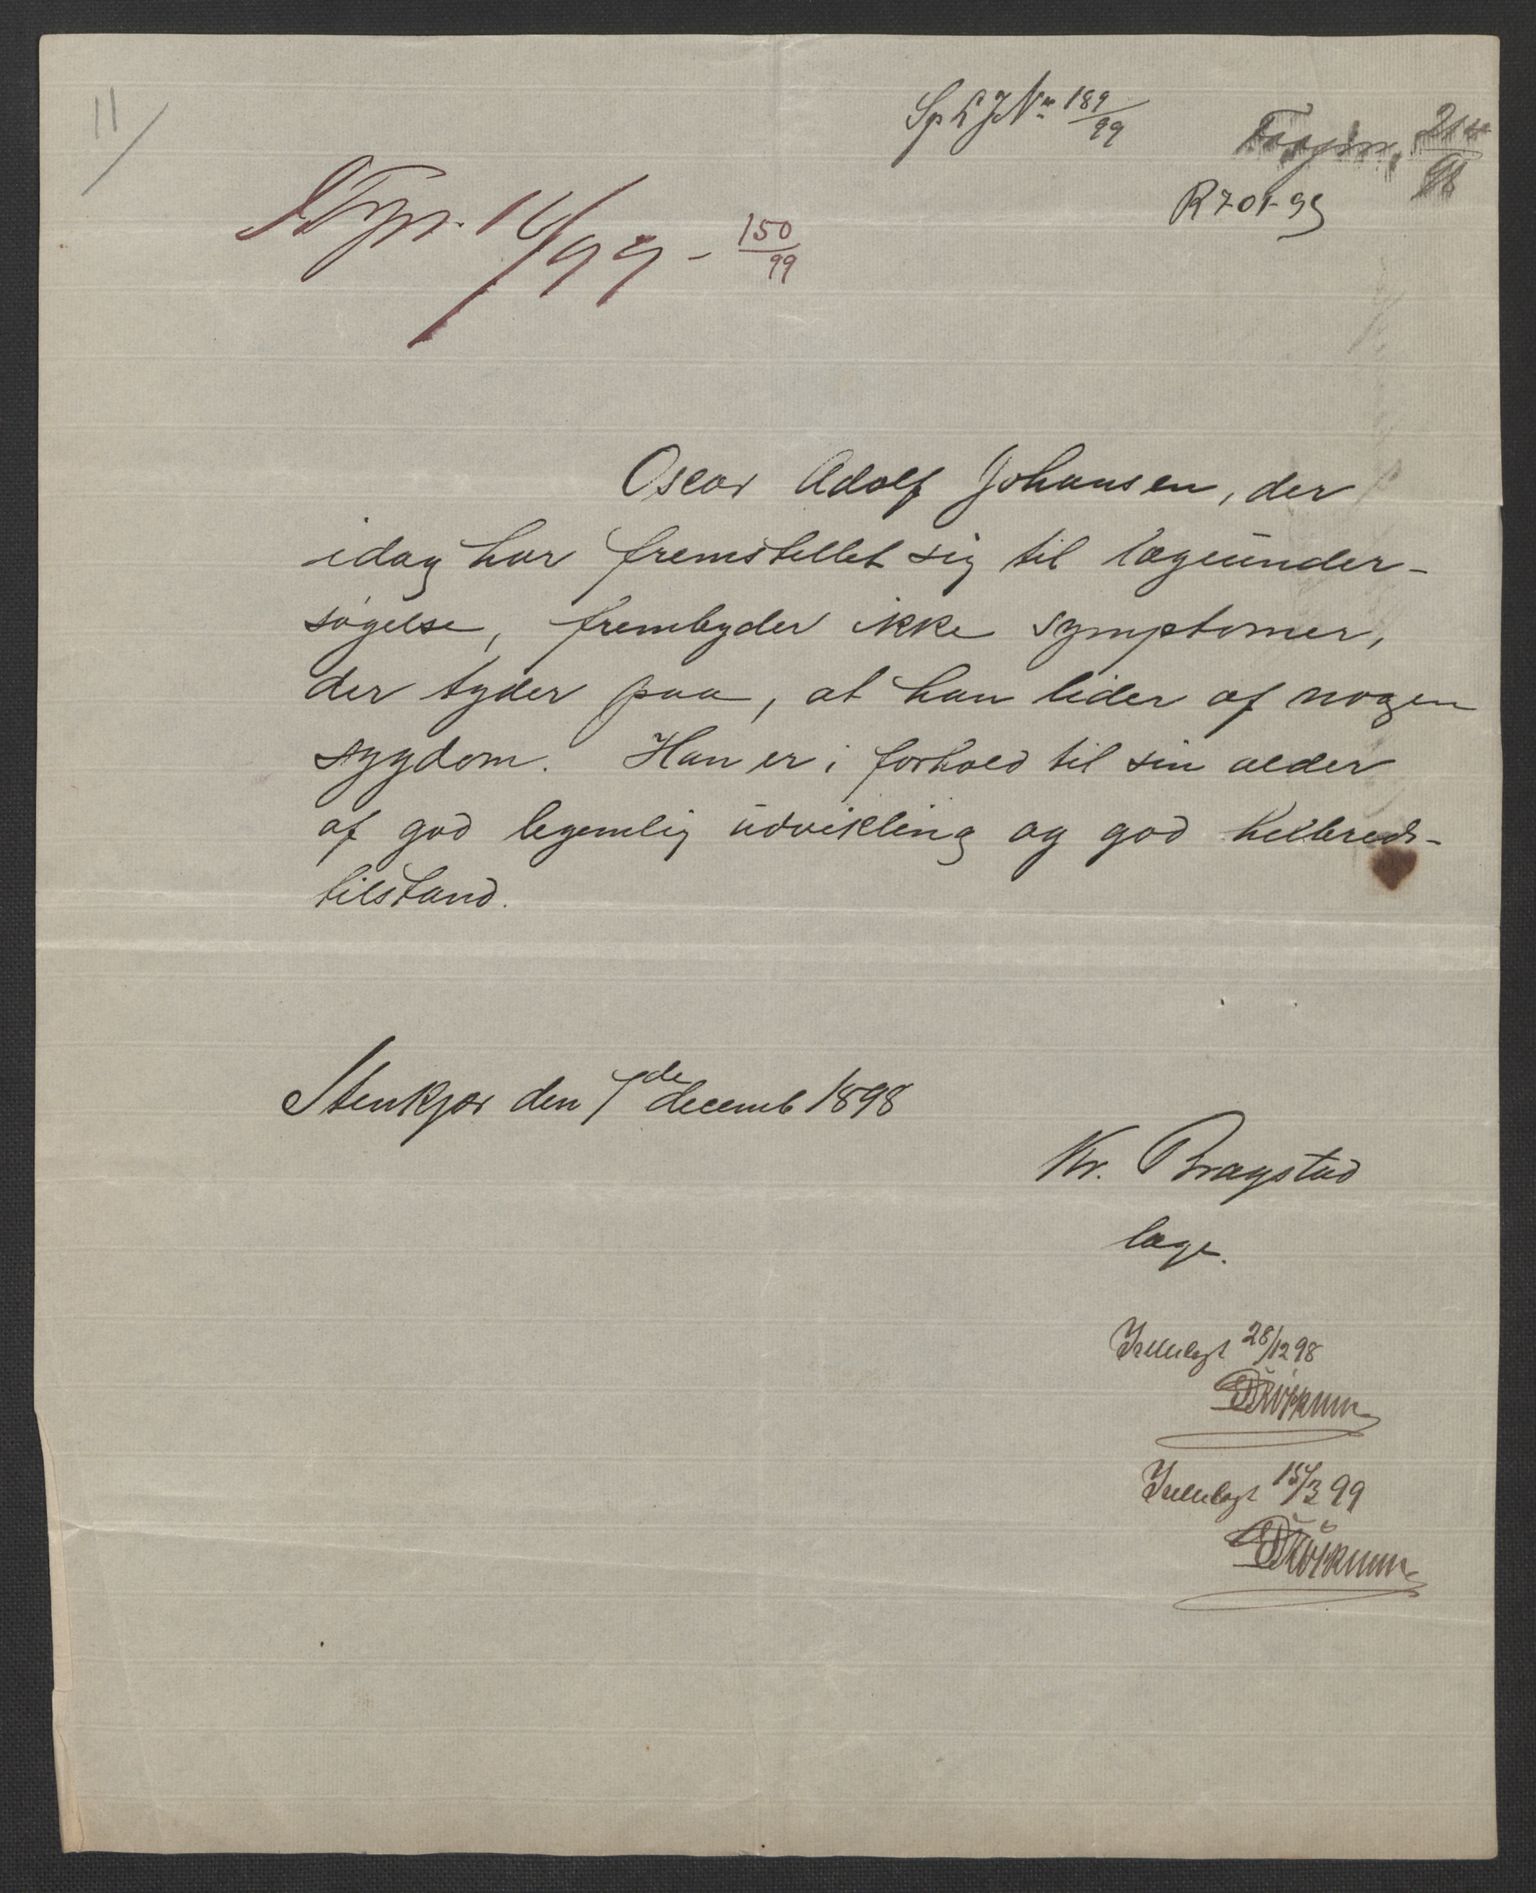 11/
Sp L J Nr 189/99
214/98
R 701-99
16/99 - 150/99
Oscar Adolf Johansen, der
idag har fremstillet sig til lægeunder-
søgelse, frembyder ikke symptomer,
der tyder paa, at han lider af nogen
sygdom. Han er i forhold til sin alder
af god legemlig udvikling og god helbreds-
tilstand.
Stenkjær den 7de decemb 1898
Kr. Bragstad
læge.
Fremlagt 28/12 98
Fremlagt 15/3 99